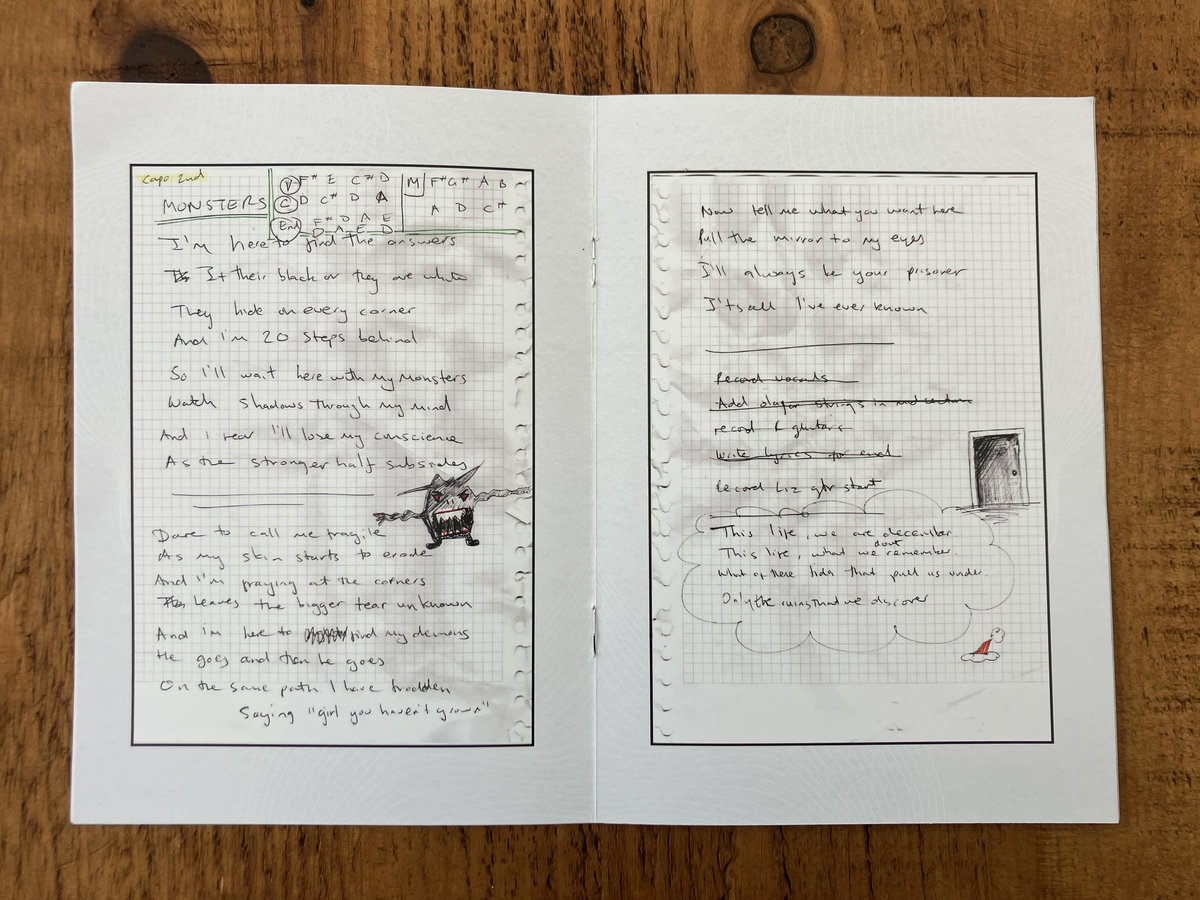 Capo 2nd
MONSTERS
V F# E C# D
C D C# D A
End F# D A E
D A E D
M F# G# A B
A D C#
I'm here to find the answers
If their black or they are white
They hide on every corner
And i'm 20 steps behind
So I'll wait here with my monsters
Watch shadows through my mind
And I fear I'll lose my conscience
As the stronger half subsides
Dare to call me fragile
As my skin starts to erode
And I'm praying at the corners
leaves the bigger tear unknown
And i'm here to find my demons
He goes and then he goes
On the same path I have trodden
Saying "girl you haven't grown"
Now tell me what you want here
Pull the mirror to my eyes
I'll always be your prisoner
It's all I've ever known
Record vocals
Add strings in mid section
record guitars
Write lyrics for end
record Liz gtr start
This life, we are december
This life, what we dont remember.
What of these tides that pull us under.
Only the ruins that we discover